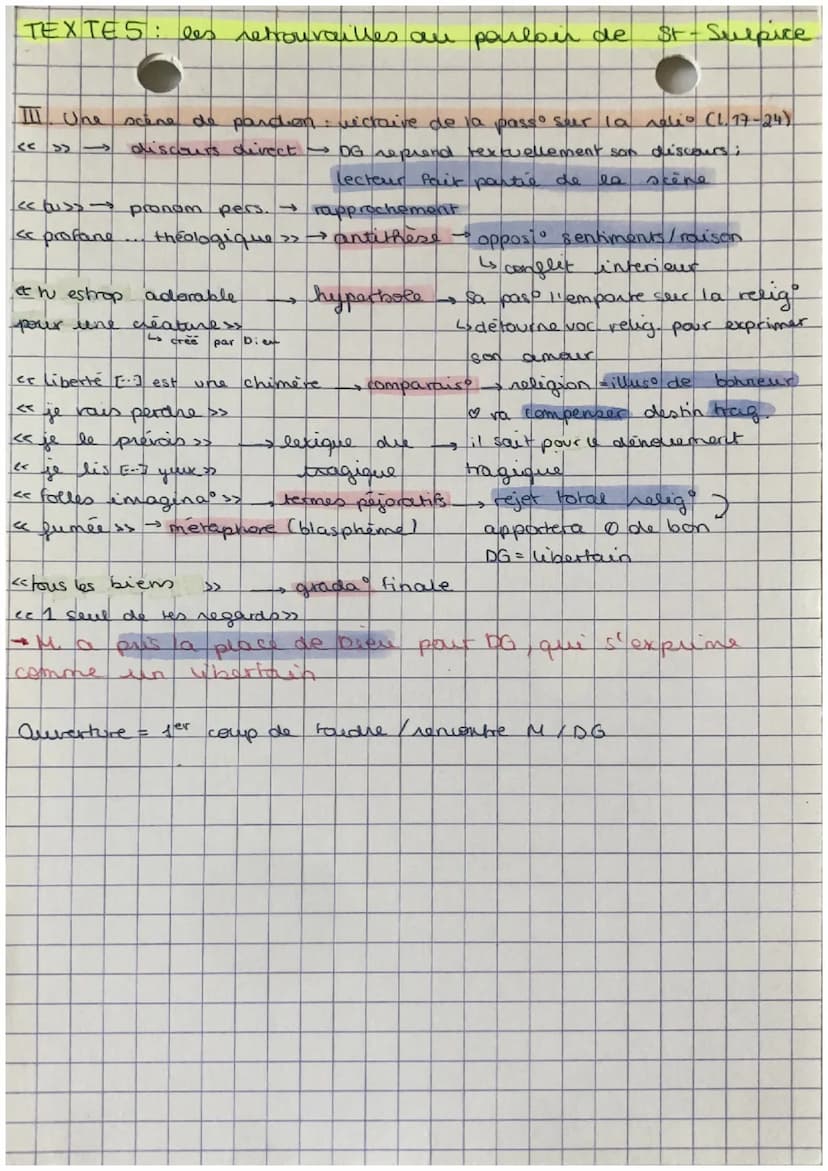 TEXTE 5 : les retrouvailles au parloir de St-Sulpice
III. Une scène de pardon : victoire de la pass° sur la relig° (l.17-24)
<< >> → discours direct → DG reprend textuellement son discours ;
lecteur fait partie de la scène
<< tu >> → pronom pers. → rapprochement
<< profane ... théologique >> → antithèse → opposi° sentiments/raison
↳ conflit intérieur
<< tu es trop adorable → hyperbole → sa pas° l'emporte sur la relig°
pour une créature >> ↳ détourne voc. relig. pour exprimer
↳ créé par Dieu
son amour
<< liberté [...] est une chimère → comparais° → religion = illus° de bonheur
<< je vais perdre >> ♡ va compenser destin trag.
<< je le prévois >> → lexique du → il sait pour le dénouement
<< je lis [...] yeux >> tragique tragique
<< folles imagina° >> → termes péjoratifs → rejet total relig°
<< fumée >> → métaphore (blasphème) apportera 0 de bon
DG = libertain
<< tous les biens >> → grada° finale
<< 1 seul de tes regards >>
→ M. a pris la place de Dieu pour DG, qui s'exprime
comme un libertain
Ouverture = 1er coup de foudre / rencontre M / DG